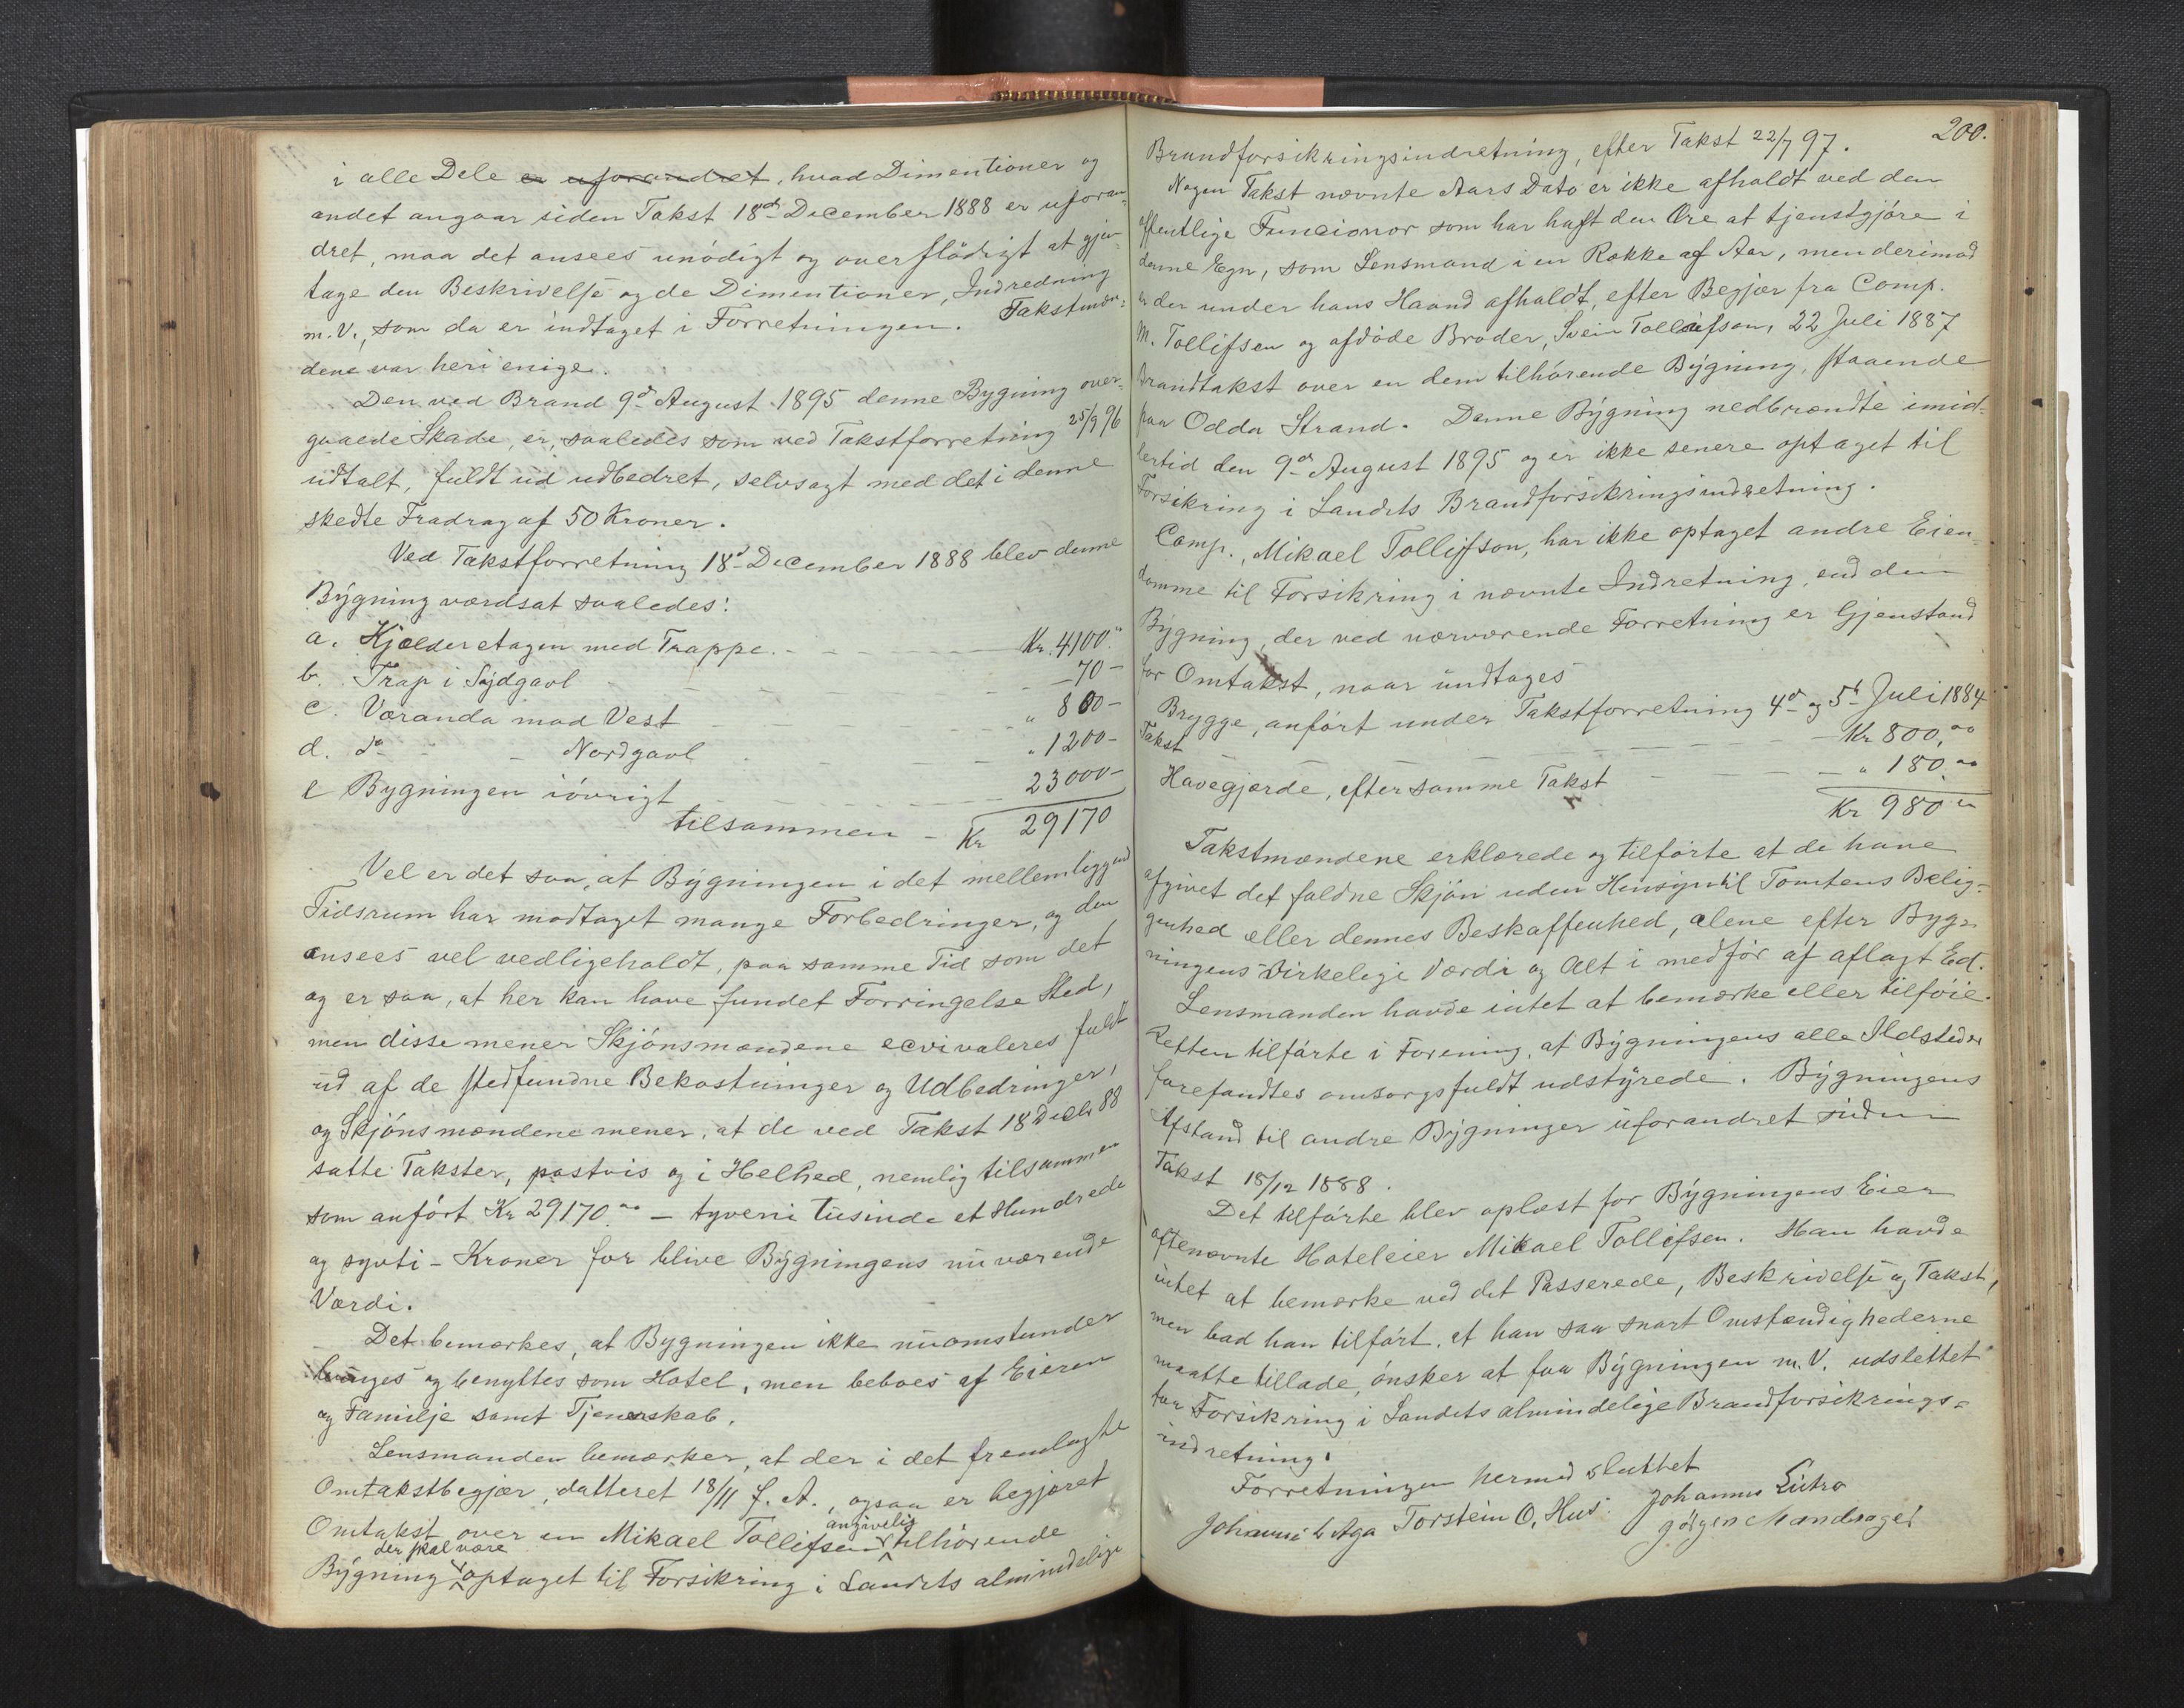 i alle Dele er uforandret, hvad Dimentioner og
andet angaar siden Takst 18d December 1888 er uforan-
dret, maa det ansees unödigt og overflödigt at gjen-
tage den Beskrivelse og de Dimentioner, Indredning
m.V., som da er indtaget i Forretningen. Takstmæn-
dene var heri enige.
Den ved Brand 9d August 1895 denne Bygning over-
gaaede Skade, er, saaledes som ved Takstforretning 25/9 96
udtalt, fuldt ud udbedret, selvsagt med det i denne
skedte Fradrag af 50 Kroner.
Ved Takstforretning 18d December 1888 blev denne
Bygning værdsat saaledes:
a. Kjælderetagen med Trappe. - - - Kr. 4100 "
b. Trap i Sydgavl - - - - 70 -
c. Væranda mod Vest - - - " 800 -
d. do - Nordgavl - - - " 1200 -
e Bygningen iövrigt - - - 23000 -
tilsammen - Kr 29170
Vel er det saa, at Bygningen i det mellemliggend
Tidsrum har modtaget mange Forbedringer, og den
ansees vel vedligeholdt, paa samme Tid som det
og er saa, at her kan have fundet Forringelse Sted,
men disse mener Skjönsmændene ecvivaleres fuldt
ud af de stedfundne Bekostninger og Udbedringer,
og Skjönsmændene mener, at de ved Takst 18 Decbr 88
satte Takster, postvis og i Helhed, nemlig tilsammen
som anfört Kr 29170.00 - tyveni tusinde et Hundrede
og sytti - Kroner for blive Bygningens nuværende
Værdi.
Det bemærkes, at Bygningen ikke nuomstunder
bruges og benyttes som Hotel, men beboes af Eieren
og Familje samt Tjenerskab.
Lensmanden bemærker, at der i det fremlagte
Omtakstbegjær, datteret 18/11 f. A., ogsaa er begjæret
Omtakst over en Mikael Tollefsen angivelig tilhörende
Bygning der skal være optaget til Forsikring i Landets almindelige
200.
Brandforsikringsindretning, efter Takst 22/7 97.
Nogen Takst nævnte Aars Dato er ikke afholdt ved den
offentlige Funcionær som har haft den Ære at tjenstgjöre i
denne Egn, som Lensmand i en Række af Aar, men derimod
er der under hans Haand afholdt, efter Begjær fra Comp.
M. Tollefsen og afdöde Broder, Svein Tollefsen, 22 Juli 1887
Brandtakst over en dem tilhörende Bygning, staaende
paa Odda Strand. Denne Bygning nedbrændte imid-
lertid den 9d August 1895 og er ikke senere optaget til
Forsikring i Landets Brandforsikringsindretning.
Comp., Mikael Tollefsen, har ikke optaget andre Eien-
domme til Forsikring i nævnte Indretning, end den
Bygning, der ved nærværende Forretning er Gjenstand
for Omtakst, naar undtages
Brygge, anfört under Takstforretning 4d og 5t Juli 1884
Takst - - - - Kr 800,00
Havegjærde, efter samme Takst - - - " 180.00
Kr 980 "
Takstmændene erklærede og tilförte at de have
afgivet det faldne Skjön uden Hensyn til Tomtens Belig-
genhed eller dennes Beskaffenhed, alene efter Byg-
ningens virkelige Værdi og Alt i medför af aflagt Ed.
Lensmanden havde intet at bemærke eller tilföie.
Retten tilförte i Forening, at Bygningens alle Ildsteder
forefandtes omsorgsfuldt udstyrede. Bygningens
Afstand til andre Bygninger uforandret siden
Takst 18/12 1888.
Det tilförte blev oplæst for Bygningens Eier
oftenævnte Hoteleier Mikael Tollefsen. Han havde
intet at bemærke ved det Passerede, Beskrivelse og Takst,
men bad han tilfört, at han saa snart Omstændighederne
maatte tillade, önsker at faa Bygningen m.V. udslettet
for Forsikring i Landets almindelige Brandforsikrings-
indretning.
Forretningen hermed sluttet
Johannes L Aga Torstein O. Hus. Johannes Lutro
Jörgen Mandsager